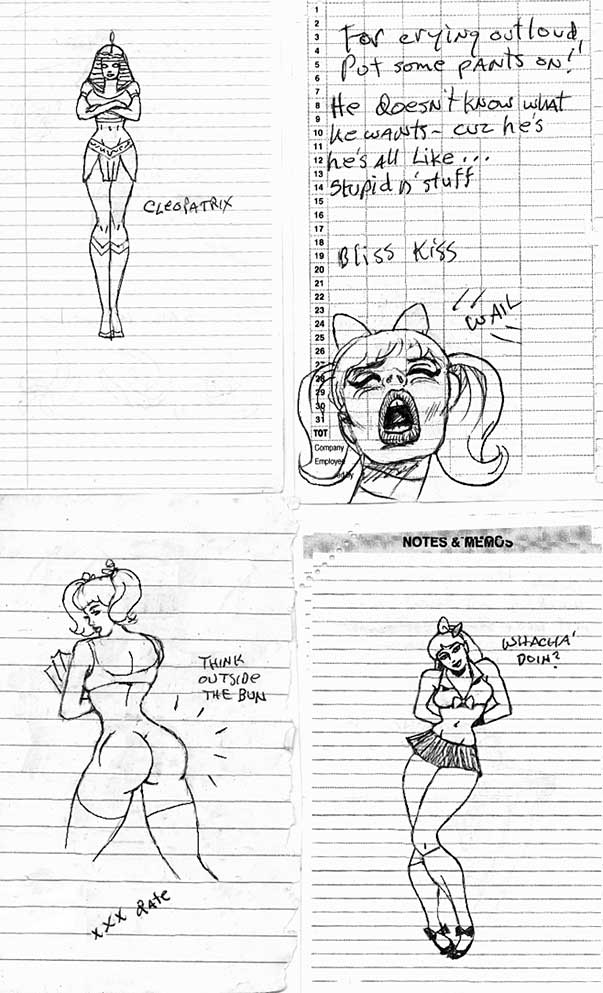 CLEOPATRIX
1
2
3
4
5
6
7
8
9
10
11
12
13
14
15
16
17
18
19
20
21
22
23
24
25
26
27
28
29
30
31
TOT
Company
Employee
ed by
For crying outloud,
Put some PANTS on!'
He doesn't know what
he wants- cuz he's
he's all Like...
Stupid n' stuff
Bliss Kiss
WAIL
THINK
OUTSIDE
THE BUN
XXX Rate
NOTES & MEMOS
WHACHA'
DOIN?